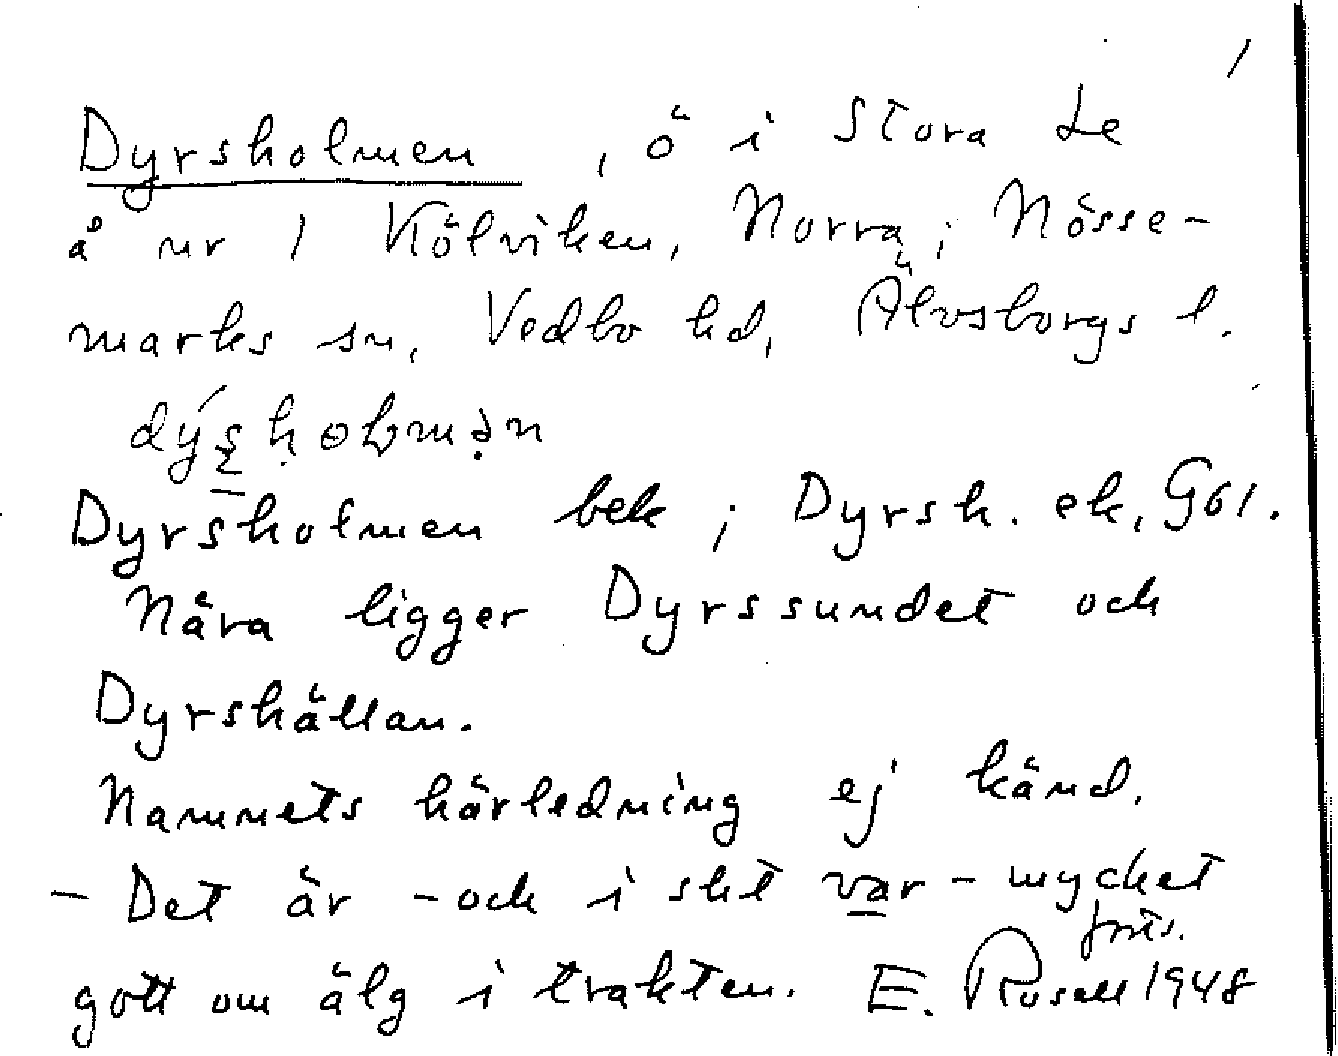 /
Dyrsholmen , ö i Stora Le
å nr 1 Kölviken, Norra, i Nösse-
marks sn, Vedbo hd, Älvsborgs l.
Dyrsholmen bek ; Dyrsh. ek, G61.
Nära ligger Dyrssundet och
Dyrshällan.
Namnets härledning ej känd.
– Det är – och i sht var – mycket
gott om älg i trakten. E. Rosell 1948